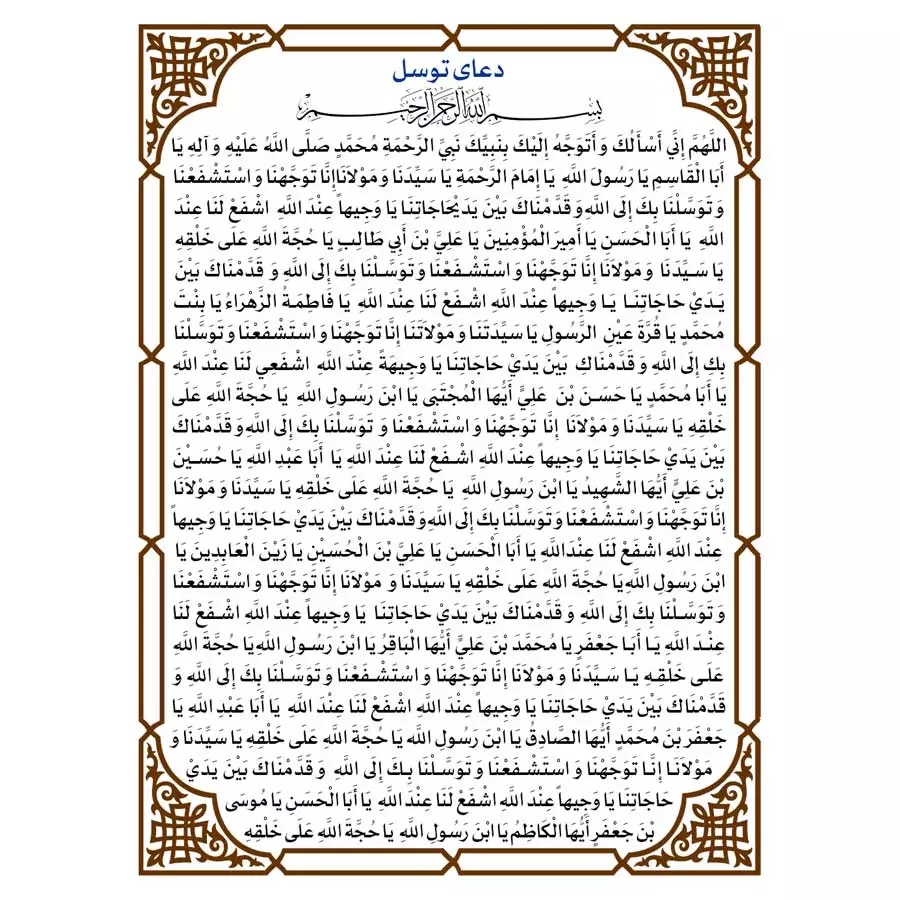 دعای توسل
بِسْمِ اللَّهِ الرَّحْمَٰنِ الرَّحِيمِ
اللَّهُمَّ إِنِّي أَسْأَلُكَ وَ أَتَوَجَّهُ إِلَيْكَ بِنَبِيِّكَ نَبِيِّ الرَّحْمَةِ مُحَمَّدٍ صَلَّى اللَّهُ عَلَيْهِ وَ آلِهِ يَا
أَبَا الْقَاسِمِ يَا رَسُولَ اللَّهِ يَا إِمَامَ الرَّحْمَةِ يَا سَيِّدَنَا وَ مَوْلَانَا إِنَّا تَوَجَّهْنَا وَ اسْتَشْفَعْنَا
وَ تَوَسَّلْنَا بِكَ إِلَى اللَّهِ وَ قَدَّمْنَاكَ بَيْنَ يَدَيْ حَاجَاتِنَا يَا وَجِيهاً عِنْدَ اللَّهِ اشْفَعْ لَنَا عِنْدَ
اللَّهِ يَا أَبَا الْحَسَنِ يَا أَمِيرَ الْمُؤْمِنِينَ يَا عَلِيَّ بْنَ أَبِي طَالِبٍ يَا حُجَّةَ اللَّهِ عَلَى خَلْقِهِ
يَا سَيِّدَنَا وَ مَوْلَانَا إِنَّا تَوَجَّهْنَا وَ اسْتَشْفَعْنَا وَ تَوَسَّلْنَا بِكَ إِلَى اللَّهِ وَ قَدَّمْنَاكَ بَيْنَ
يَدَيْ حَاجَاتِنَا يَا وَجِيهاً عِنْدَ اللَّهِ اشْفَعْ لَنَا عِنْدَ اللَّهِ يَا فَاطِمَةُ الزَّهْرَاءُ يَا بِنْتَ
مُحَمَّدٍ يَا قُرَّةَ عَيْنِ الرَّسُولِ يَا سَيِّدَتَنَا وَ مَوْلَاتَنَا إِنَّا تَوَجَّهْنَا وَ اسْتَشْفَعْنَا وَ تَوَسَّلْنَا
بِكِ إِلَى اللَّهِ وَ قَدَّمْنَاكِ بَيْنَ يَدَيْ حَاجَاتِنَا يَا وَجِيهَةً عِنْدَ اللَّهِ اشْفَعِي لَنَا عِنْدَ اللَّهِ
يَا أَبَا مُحَمَّدٍ يَا حَسَنَ بْنَ عَلِيٍّ أَيُّهَا الْمُجْتَبَى يَا ابْنَ رَسُولِ اللَّهِ يَا حُجَّةَ اللَّهِ عَلَى
خَلْقِهِ يَا سَيِّدَنَا وَ مَوْلَانَا إِنَّا تَوَجَّهْنَا وَ اسْتَشْفَعْنَا وَ تَوَسَّلْنَا بِكَ إِلَى اللَّهِ وَ قَدَّمْنَاكَ
بَيْنَ يَدَيْ حَاجَاتِنَا يَا وَجِيهاً عِنْدَ اللَّهِ اشْفَعْ لَنَا عِنْدَ اللَّهِ يَا أَبَا عَبْدِ اللَّهِ يَا حُسَيْنَ
بْنَ عَلِيٍّ أَيُّهَا الشَّهِيدُ يَا ابْنَ رَسُولِ اللَّهِ يَا حُجَّةَ اللَّهِ عَلَى خَلْقِهِ يَا سَيِّدَنَا وَ مَوْلَانَا
إِنَّا تَوَجَّهْنَا وَ اسْتَشْفَعْنَا وَ تَوَسَّلْنَا بِكَ إِلَى اللَّهِ وَ قَدَّمْنَاكَ بَيْنَ يَدَيْ حَاجَاتِنَا يَا وَجِيهاً
عِنْدَ اللَّهِ اشْفَعْ لَنَا عِنْدَ اللَّهِ يَا أَبَا الْحَسَنِ يَا عَلِيَّ بْنَ الْحُسَيْنِ يَا زَيْنَ الْعَابِدِينَ يَا
ابْنَ رَسُولِ اللَّهِ يَا حُجَّةَ اللَّهِ عَلَى خَلْقِهِ يَا سَيِّدَنَا وَ مَوْلَانَا إِنَّا تَوَجَّهْنَا وَ اسْتَشْفَعْنَا
وَ تَوَسَّلْنَا بِكَ إِلَى اللَّهِ وَ قَدَّمْنَاكَ بَيْنَ يَدَيْ حَاجَاتِنَا يَا وَجِيهاً عِنْدَ اللَّهِ اشْفَعْ لَنَا
عِنْدَ اللَّهِ يَا أَبَا جَعْفَرٍ يَا مُحَمَّدَ بْنَ عَلِيٍّ أَيُّهَا الْبَاقِرُ يَا ابْنَ رَسُولِ اللَّهِ يَا حُجَّةَ اللَّهِ
عَلَى خَلْقِهِ يَا سَيِّدَنَا وَ مَوْلَانَا إِنَّا تَوَجَّهْنَا وَ اسْتَشْفَعْنَا وَ تَوَسَّلْنَا بِكَ إِلَى اللَّهِ وَ
قَدَّمْنَاكَ بَيْنَ يَدَيْ حَاجَاتِنَا يَا وَجِيهاً عِنْدَ اللَّهِ اشْفَعْ لَنَا عِنْدَ اللَّهِ يَا أَبَا عَبْدِ اللَّهِ يَا
جَعْفَرَ بْنَ مُحَمَّدٍ أَيُّهَا الصَّادِقُ يَا ابْنَ رَسُولِ اللَّهِ يَا حُجَّةَ اللَّهِ عَلَى خَلْقِهِ يَا سَيِّدَنَا وَ
مَوْلَانَا إِنَّا تَوَجَّهْنَا وَ اسْتَشْفَعْنَا وَ تَوَسَّلْنَا بِكَ إِلَى اللَّهِ وَ قَدَّمْنَاكَ بَيْنَ يَدَيْ
حَاجَاتِنَا يَا وَجِيهاً عِنْدَ اللَّهِ اشْفَعْ لَنَا عِنْدَ اللَّهِ يَا أَبَا الْحَسَنِ يَا مُوسَى
بْنَ جَعْفَرٍ أَيُّهَا الْكَاظِمُ يَا ابْنَ رَسُولِ اللَّهِ يَا حُجَّةَ اللَّهِ عَلَى خَلْقِهِ